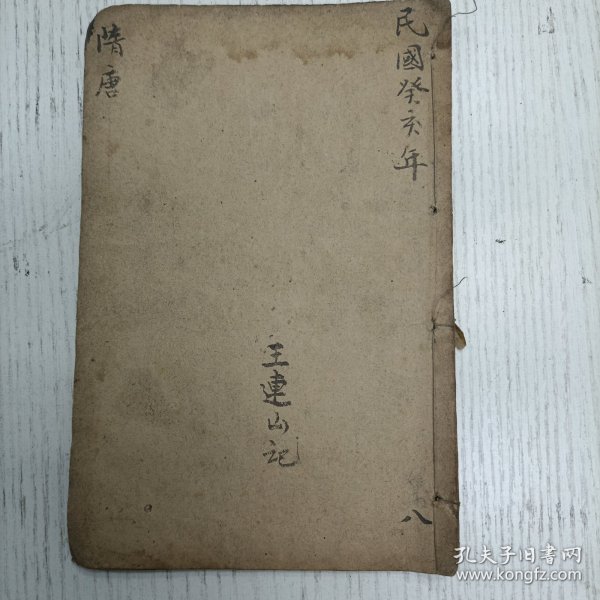 民國癸亥年
八
王連山記
隋唐
孔夫子旧书网
www.kongfz.com